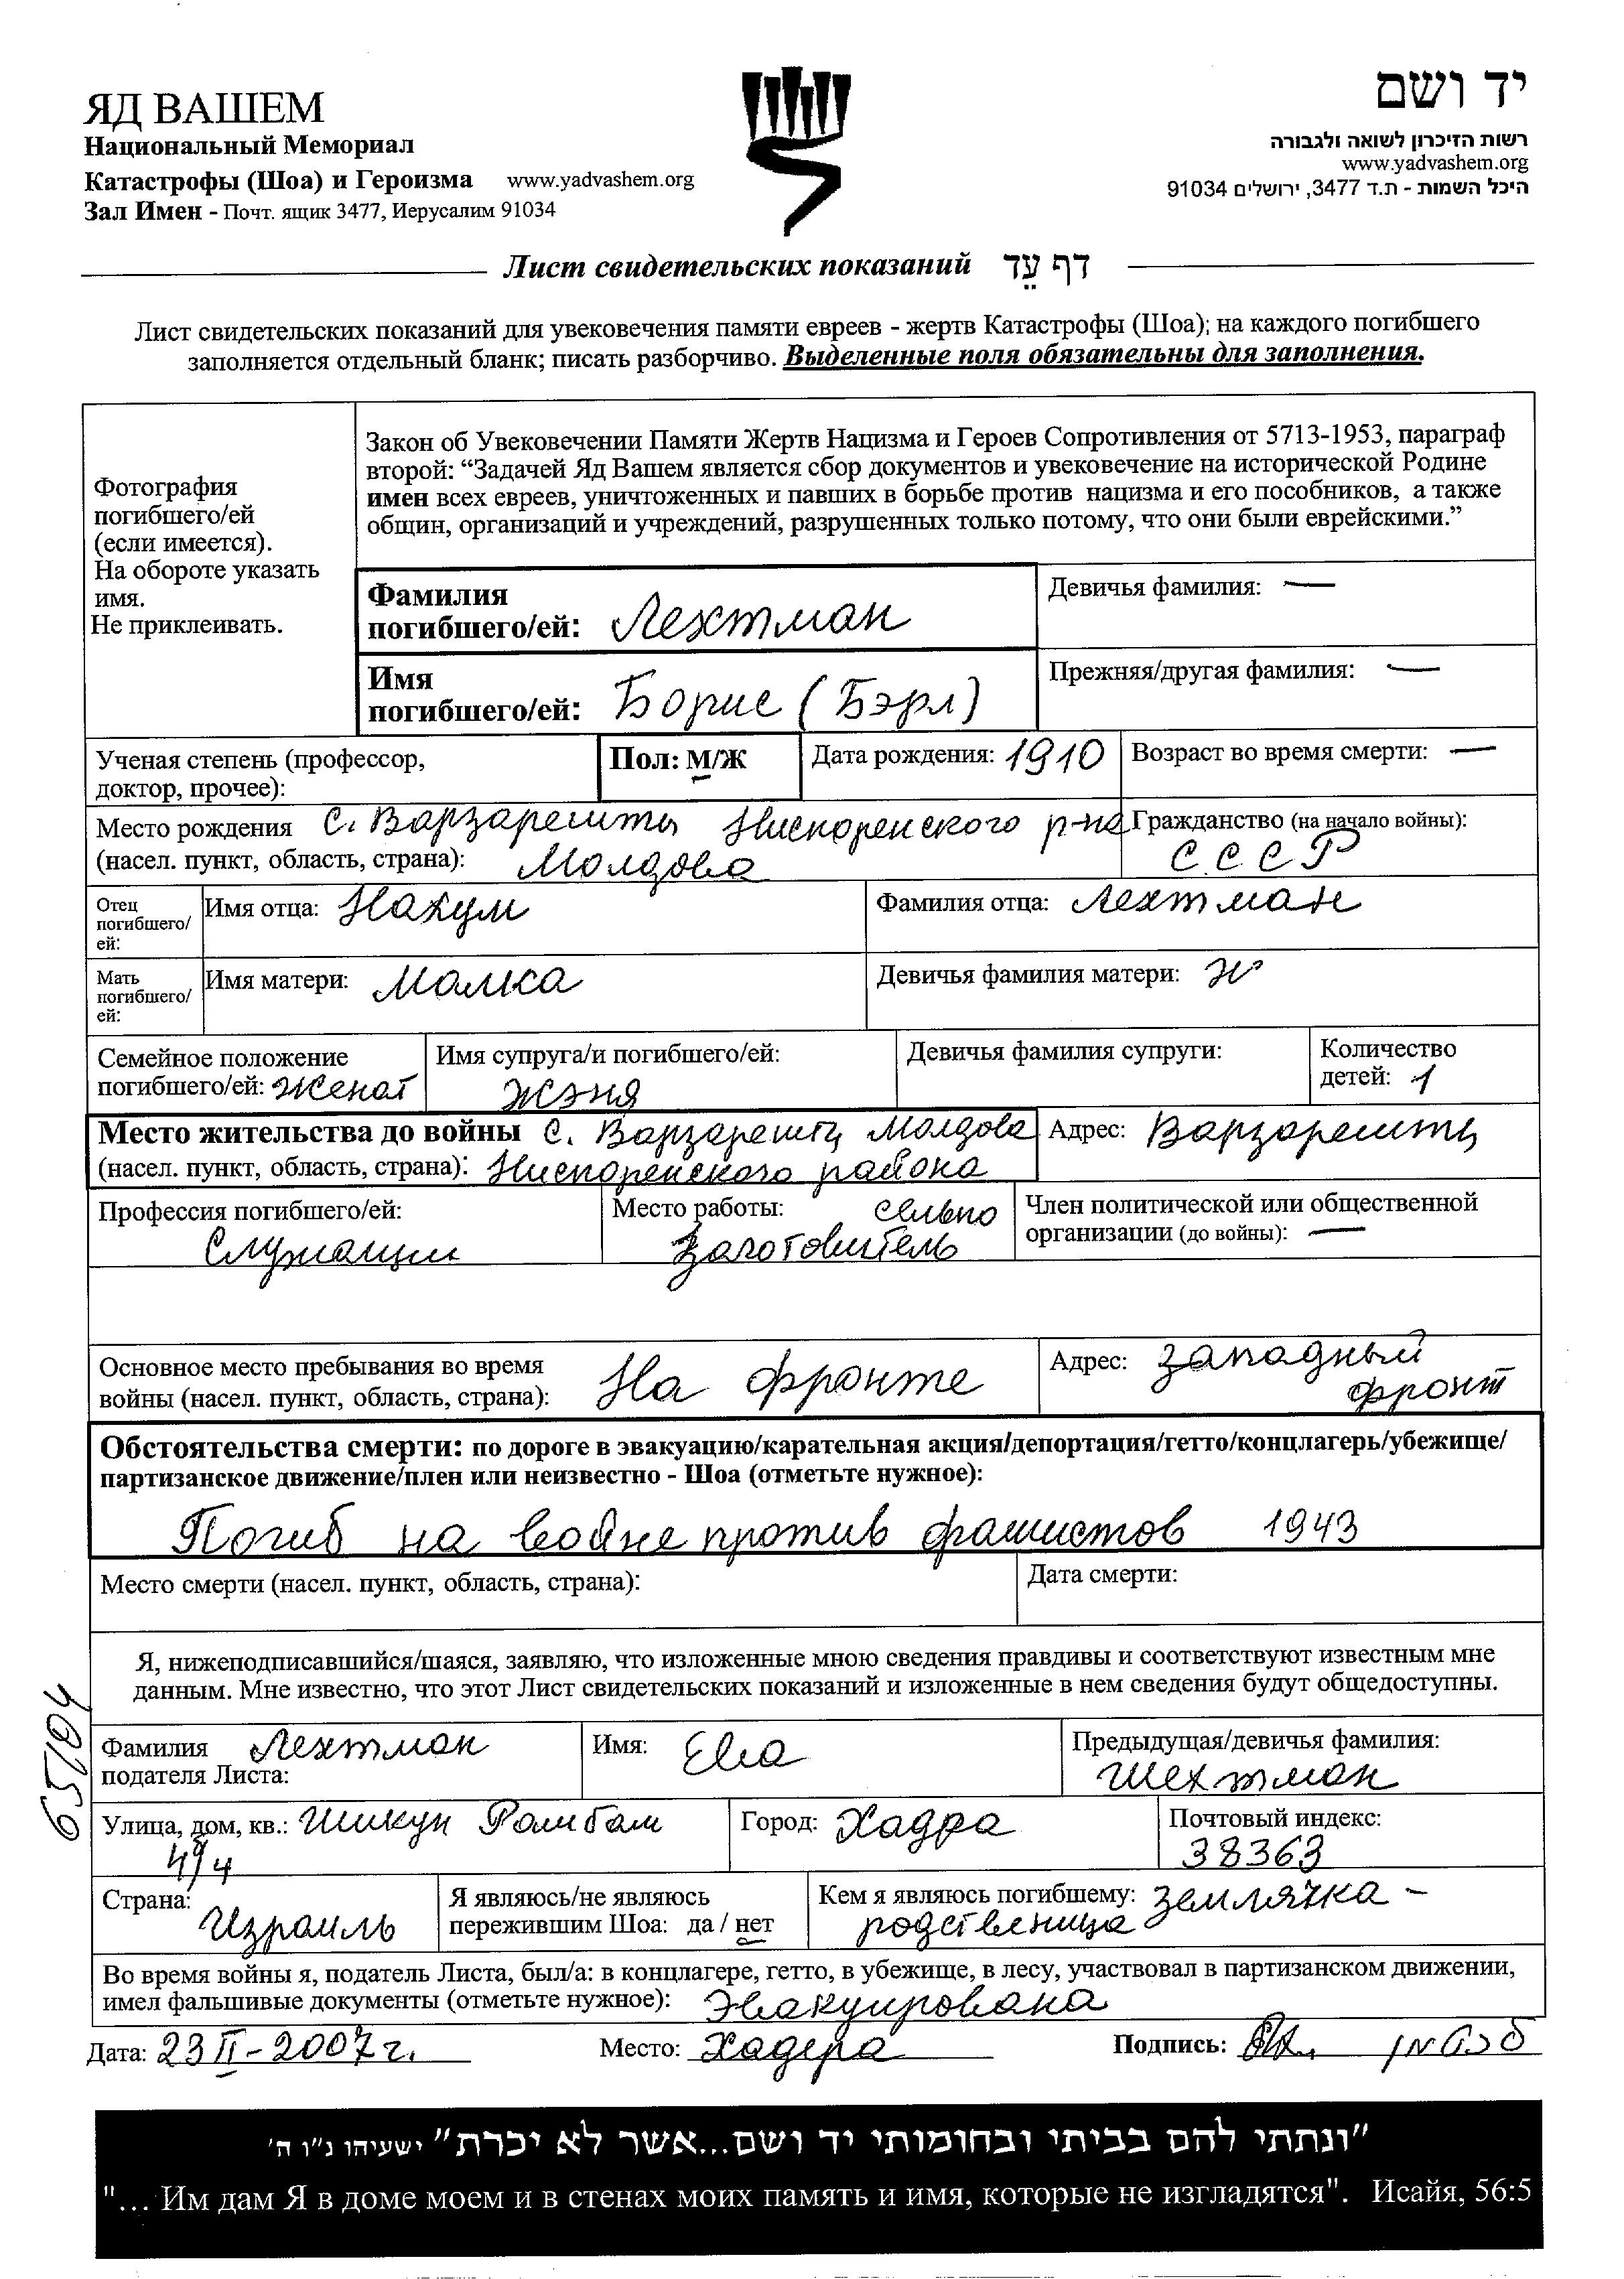 ЯД ВАШЕМ
Национальный Мемориал
Катастрофы (Шоа) и Героизма www.yadvashem.org
Зал Имен - Почт. ящик 3477, Иерусалим 91034
יד ושם
רשות הזיכרון לשואה ולגבורה
www.yadvashem.org
היכל השמות - ת.ד 3477, ירושלים 91034
Лист свидетельских показаний דף עֵד
Лист свидетельских показаний для увековечения памяти евреев - жертв Катастрофы (Шоа); на каждого погибшего
заполняется отдельный бланк; писать разборчиво. Выделенные поля обязательны для заполнения.
Фотография
погибшего/ей
(если имеется).
На обороте указать
имя.
Не приклеивать.
Закон об Увековечении Памяти Жертв Нацизма и Героев Сопротивления от 5713-1953, параграф
второй: “Задачей Яд Вашем является сбор документов и увековечение на исторической Родине
имен всех евреев, уничтоженных и павших в борьбе против нацизма и его пособников, а также
общин, организаций и учреждений, разрушенных только потому, что они были еврейскими.”
Фамилия
погибшего/ей: Лехтман
Девичья фамилия: —
Имя
погибшего/ей: Борис (Бэрл)
Прежняя/другая фамилия: —
Ученая степень (профессор,
доктор, прочее):
Пол: М/Ж
Дата рождения: 1910
Возраст во время смерти: —
Место рождения с. Варзарешты Ниспоренского р-на
(насел. пункт, область, страна): Молдова
Гражданство (на начало войны):
СССР
Отец
погибшего/
ей:
Имя отца: Нахум
Фамилия отца: Лехтман
Мать
погибшего/
ей:
Имя матери: Малка
Девичья фамилия матери:
Семейное положение
погибшего/ей: женат
Имя супруга/и погибшего/ей:
Жэня
Девичья фамилия супруги:
Количество
детей: 1
Место жительства до войны с. Варзарешты Молдова
(насел. пункт, область, страна): Ниспоренского района
Адрес: Варзарешты
Профессия погибшего/ей:
Служащии
Место работы: сельпо
Заготовитель
Член политической или общественной
организации (до войны): —
Основное место пребывания во время
войны (насел. пункт, область, страна): На фронте
Адрес: Западный
фронт
Обстоятельства смерти: по дороге в эвакуацию/карательная акция/депортация/гетто/концлагерь/убежище/
партизанское движение/плен или неизвестно - Шоа (отметьте нужное):
Погиб на войне против фашистов 1943
Место смерти (насел. пункт, область, страна):
Дата смерти:
Я, нижеподписавшийся/шаяся, заявляю, что изложенные мною сведения правдивы и соответствуют известным мне
данным. Мне известно, что этот Лист свидетельских показаний и изложенные в нем сведения будут общедоступны.
Фамилия Лехтман
подателя Листа:
Имя: Ева
Предыдущая/девичья фамилия:
Шехтман
Улица, дом, кв.: Шикун Рамбам
Город: Хадра
Почтовый индекс:
38363
Страна:
Израиль
Я являюсь/не являюсь
пережившим Шоа: да / нет
Кем я являюсь погибшему: землячка -
родственица
Во время войны я, податель Листа, был/а: в концлагере, гетто, в убежище, в лесу, участвовал в партизанском движении,
имел фальшивые документы (отметьте нужное): Эвакуирована
Дата: 23 II - 2007 г.
Место: Хадера
Подпись:
"ונתתי להם בביתי ובחומותי יד ושם...אשר לא יכרת" ישעיהו נ"ו ה'
"... Им дам Я в доме моем и в стенах моих память и имя, которые не изгладятся". Исайя, 56:5